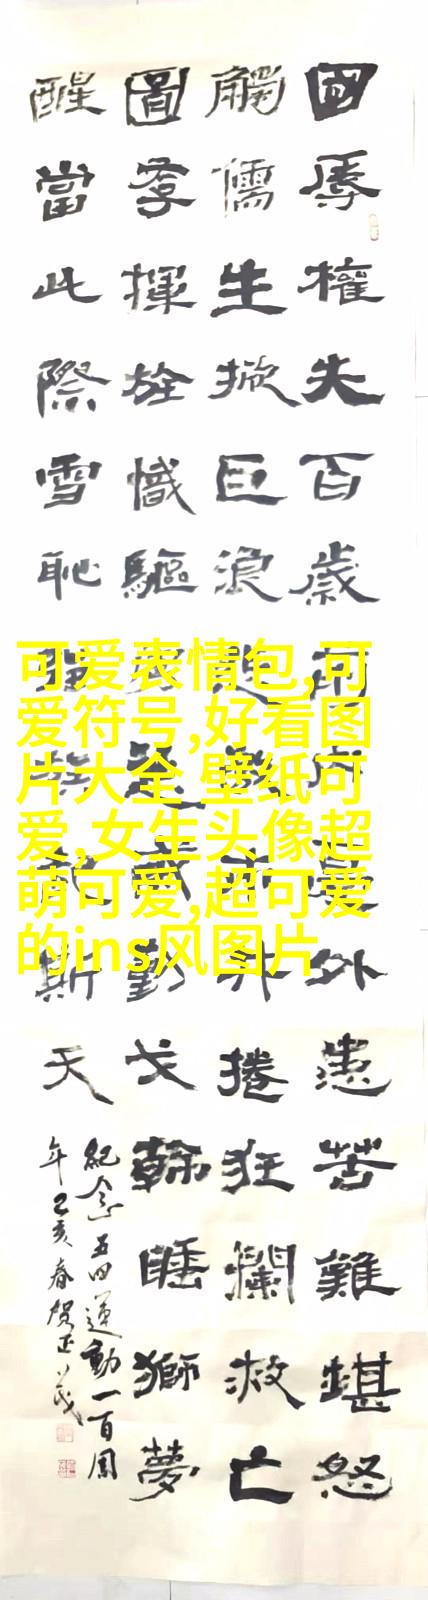 國辱權失百歲外患苦難堪怒
觸儒生掀巨浪井捲狂瀾救亡
圖存揮旌幟驅戈睡獅夢
醒當此際雪恥斯天
紀念五四運動一百周
年己亥春贺正
可爱表情包,可
爱符号,好看图
片大全 壁纸可
爱,女生头像超
萌可爱,超可爱
的ins风图片